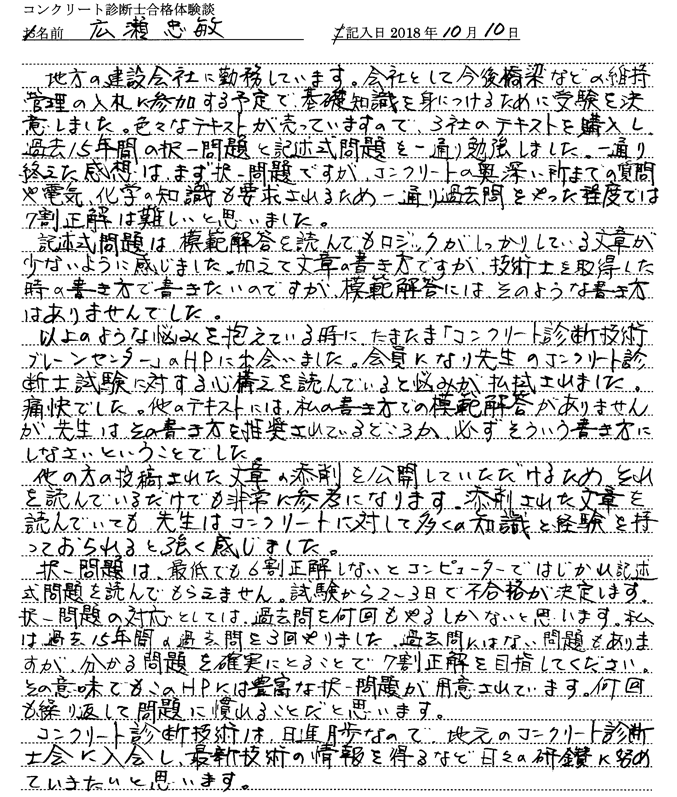 コンクリート診断士合格体験談
お名前 広瀬忠敏 ご記入日 2018年10月10日
地方の建設会社に勤務しています。会社として今後橋梁などの維持
管理の入札に参加する予定で、基礎知識を身につけるために受験を決
意しました。色々なテキストが売っていますので、3社のテキストを購入し、
過去15年間の択一問題と記述式問題を一通り勉強しました。一通り
終えた感想は、まず択一問題ですが、コンクリートの奥深い所までの質問
や電気、化学の知識も要求されるため一通り過去問をやった程度では
7割正解は難しいと思いました。
記述式問題は、模範解答を読んでもロジックがしっかりしている文章が
少ないように感じました。加えて文章の書き方ですが、技術士を取得した
時の書き方で書きたいのですが、模範解答にはそのような書き方
はありませんでした。
以上のような悩みを抱えている時に、たまたま「コンクリート診断技術
ブレーンセンター」のHPに出会いました。会員になり先生のコンクリート診
断士試験に対する心構えを読んでいると悩みが払拭されました。
痛快でした。他のテキストには、私の書き方での模範解答がありません
が、先生はその書き方を推奨されているどころか、必ずそういう書き方に
しなさいということでした。
他の方の投稿された文章の添削を公開していただけるため、それ
を読んでいるだけでも非常に参考になります。添削された文章を
読んでいても、先生はコンクリートに対して多くの知識と経験を持
っておられると強く感じました。
択一問題は、最低でも6割正解しないとコンピューターではじかれ記述
式問題を読んでもらえません。試験から2～3日で不合格が決定します。
択一問題の対応としては、過去問を何回もやるしかないと思います。私
は過去15年間の過去問を3回やりました。過去問にはない問題もありま
すが、分かる問題を確実にとることで7割正解を目指してください。
その意味でもこのHPには豊富な択一問題が用意されています。何回
も繰り返して問題に慣れることだと思います。
コンクリート診断技術は、日進月歩なので、地元のコンクリート診断
士会に入会し、最新技術の情報を得るなど日々の研鑽に努め
ていきたいと思います。